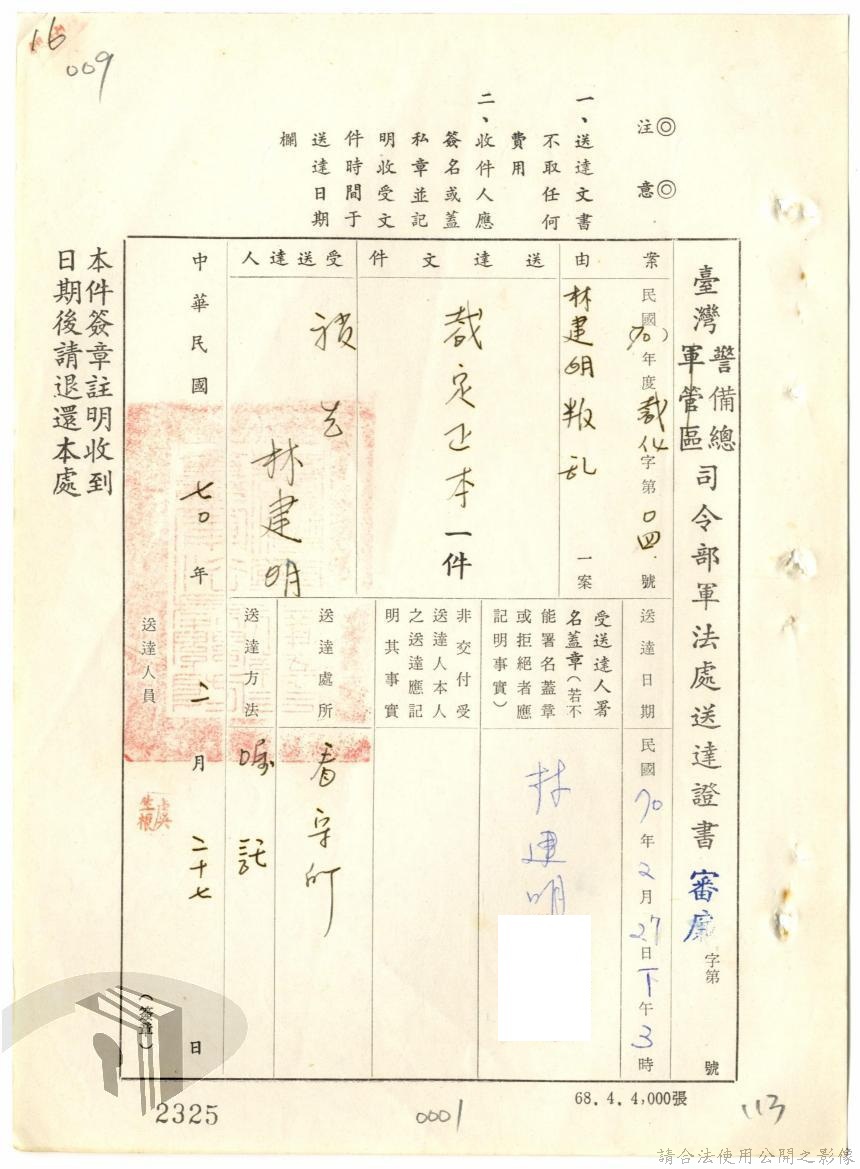 16
009
◎注意◎
一、送達文書
不取任何
費用
二、收件人應
簽名或蓋
私章並記
明收受文
件時間于
送達日期
欄
臺灣警備總軍管區司令部軍法處送達證書 審 字第 號
案由
民國(70)年度裁 字第〇四號
林建明叛乱一案
送達文件
裁定正本一件
受送達人
林建明
送達日期
民國70年2月27日下午3時
受送達人署
名蓋章(若不
能署名蓋章
或拒絕者應
記明事實)
林建明
非交付受
送達人本人
之送達應記
明其事實
送達處所
看守所
送達方法
囑託
中華民國七〇年二月二十七日
送達人員
(簽章)
本件簽章註明收到
日期後請退還本處
2325
0001
68.4.4,000張
113
請合法使用公開之影像